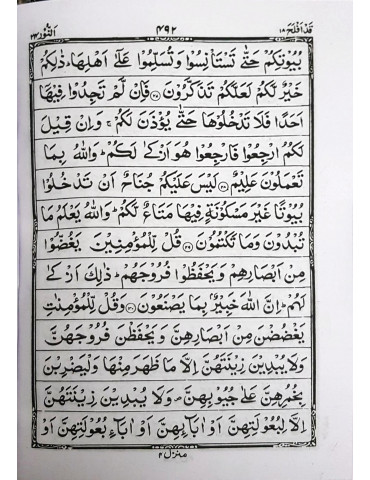 قَدْ اَفْلَحَ ١٨ ۴۹۲ اَلنُّوْر ٢٤
بُيُوْتِكُمْ حَتّٰى تَسْتَاْنِسُوْا وَتُسَلِّمُوْا عَلٰٓى اَهْلِهَا ؕ ذٰلِكُمْ
خَيْرٌ لَّكُمْ لَعَلَّكُمْ تَذَكَّرُوْنَ ۝۲۷ فَاِنْ لَّمْ تَجِدُوْا فِيْهَاۤ
اَحَدًا فَلَا تَدْخُلُوْهَا حَتّٰى يُؤْذَنَ لَكُمْ ۚ وَاِنْ قِيْلَ
لَكُمُ ارْجِعُوْا فَارْجِعُوْا هُوَ اَزْكٰى لَكُمْ ؕ وَاللّٰهُ بِمَا
تَعْمَلُوْنَ عَلِيْمٌ ۝۲۸ لَيْسَ عَلَيْكُمْ جُنَاحٌ اَنْ تَدْخُلُوْا
بُيُوْتًا غَيْرَ مَسْكُوْنَةٍ فِيْهَا مَتَاعٌ لَّكُمْ ؕ وَاللّٰهُ يَعْلَمُ مَا
تُبْدُوْنَ وَمَا تَكْتُمُوْنَ ۝۲۹ قُلْ لِّلْمُؤْمِنِيْنَ يَغُضُّوْا
مِنْ اَبْصَارِهِمْ وَيَحْفَظُوْا فُرُوْجَهُمْ ؕ ذٰلِكَ اَزْكٰى
لَهُمْ ؕ اِنَّ اللّٰهَ خَبِيْرٌۢ بِمَا يَصْنَعُوْنَ ۝۳۰ وَقُلْ لِّلْمُؤْمِنٰتِ
يَغْضُضْنَ مِنْ اَبْصَارِهِنَّ وَيَحْفَظْنَ فُرُوْجَهُنَّ
وَلَا يُبْدِيْنَ زِيْنَتَهُنَّ اِلَّا مَا ظَهَرَ مِنْهَا وَلْيَضْرِبْنَ
بِخُمُرِهِنَّ عَلٰى جُيُوْبِهِنَّ ۪ وَلَا يُبْدِيْنَ زِيْنَتَهُنَّ
اِلَّا لِبُعُوْلَتِهِنَّ اَوْ اٰبَآئِهِنَّ اَوْ اٰبَآءِ بُعُوْلَتِهِنَّ اَوْ
منزل ۴